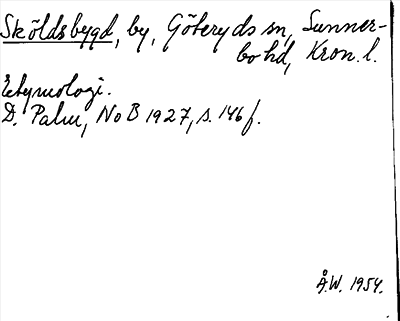 Sköldsbygd, by, Göteryds sn, Sunner-
bo hd, Kron. l.
Etymologi.
D. Palm, NoB 1927, s. 146 f.
Å.W. 1954.